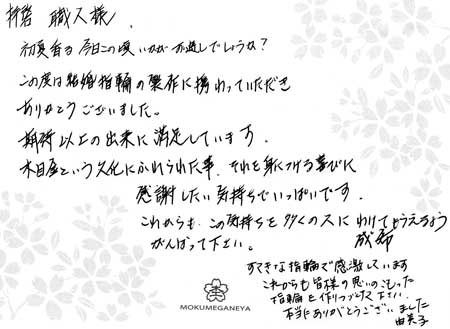 職人様
初夏香る今日この頃いかがお過しでしょうな?
この度は結婚指輪の製作に携わっていただき
ありがとうございました。
期待以上の出来に満足しています.
木目金という文化にふれられた事.それを身につける喜びに
感謝したい気持ちでいっぱいです.
これからも.この気持ちを多くの人にわけてもらえるよう
がんばって下さい。
すてきな指輪で感激しています
これからも皆様の思いのこもった
指輪を作りつづけて下さい.
本当にありがとうございました
MOKUMEGANEYA